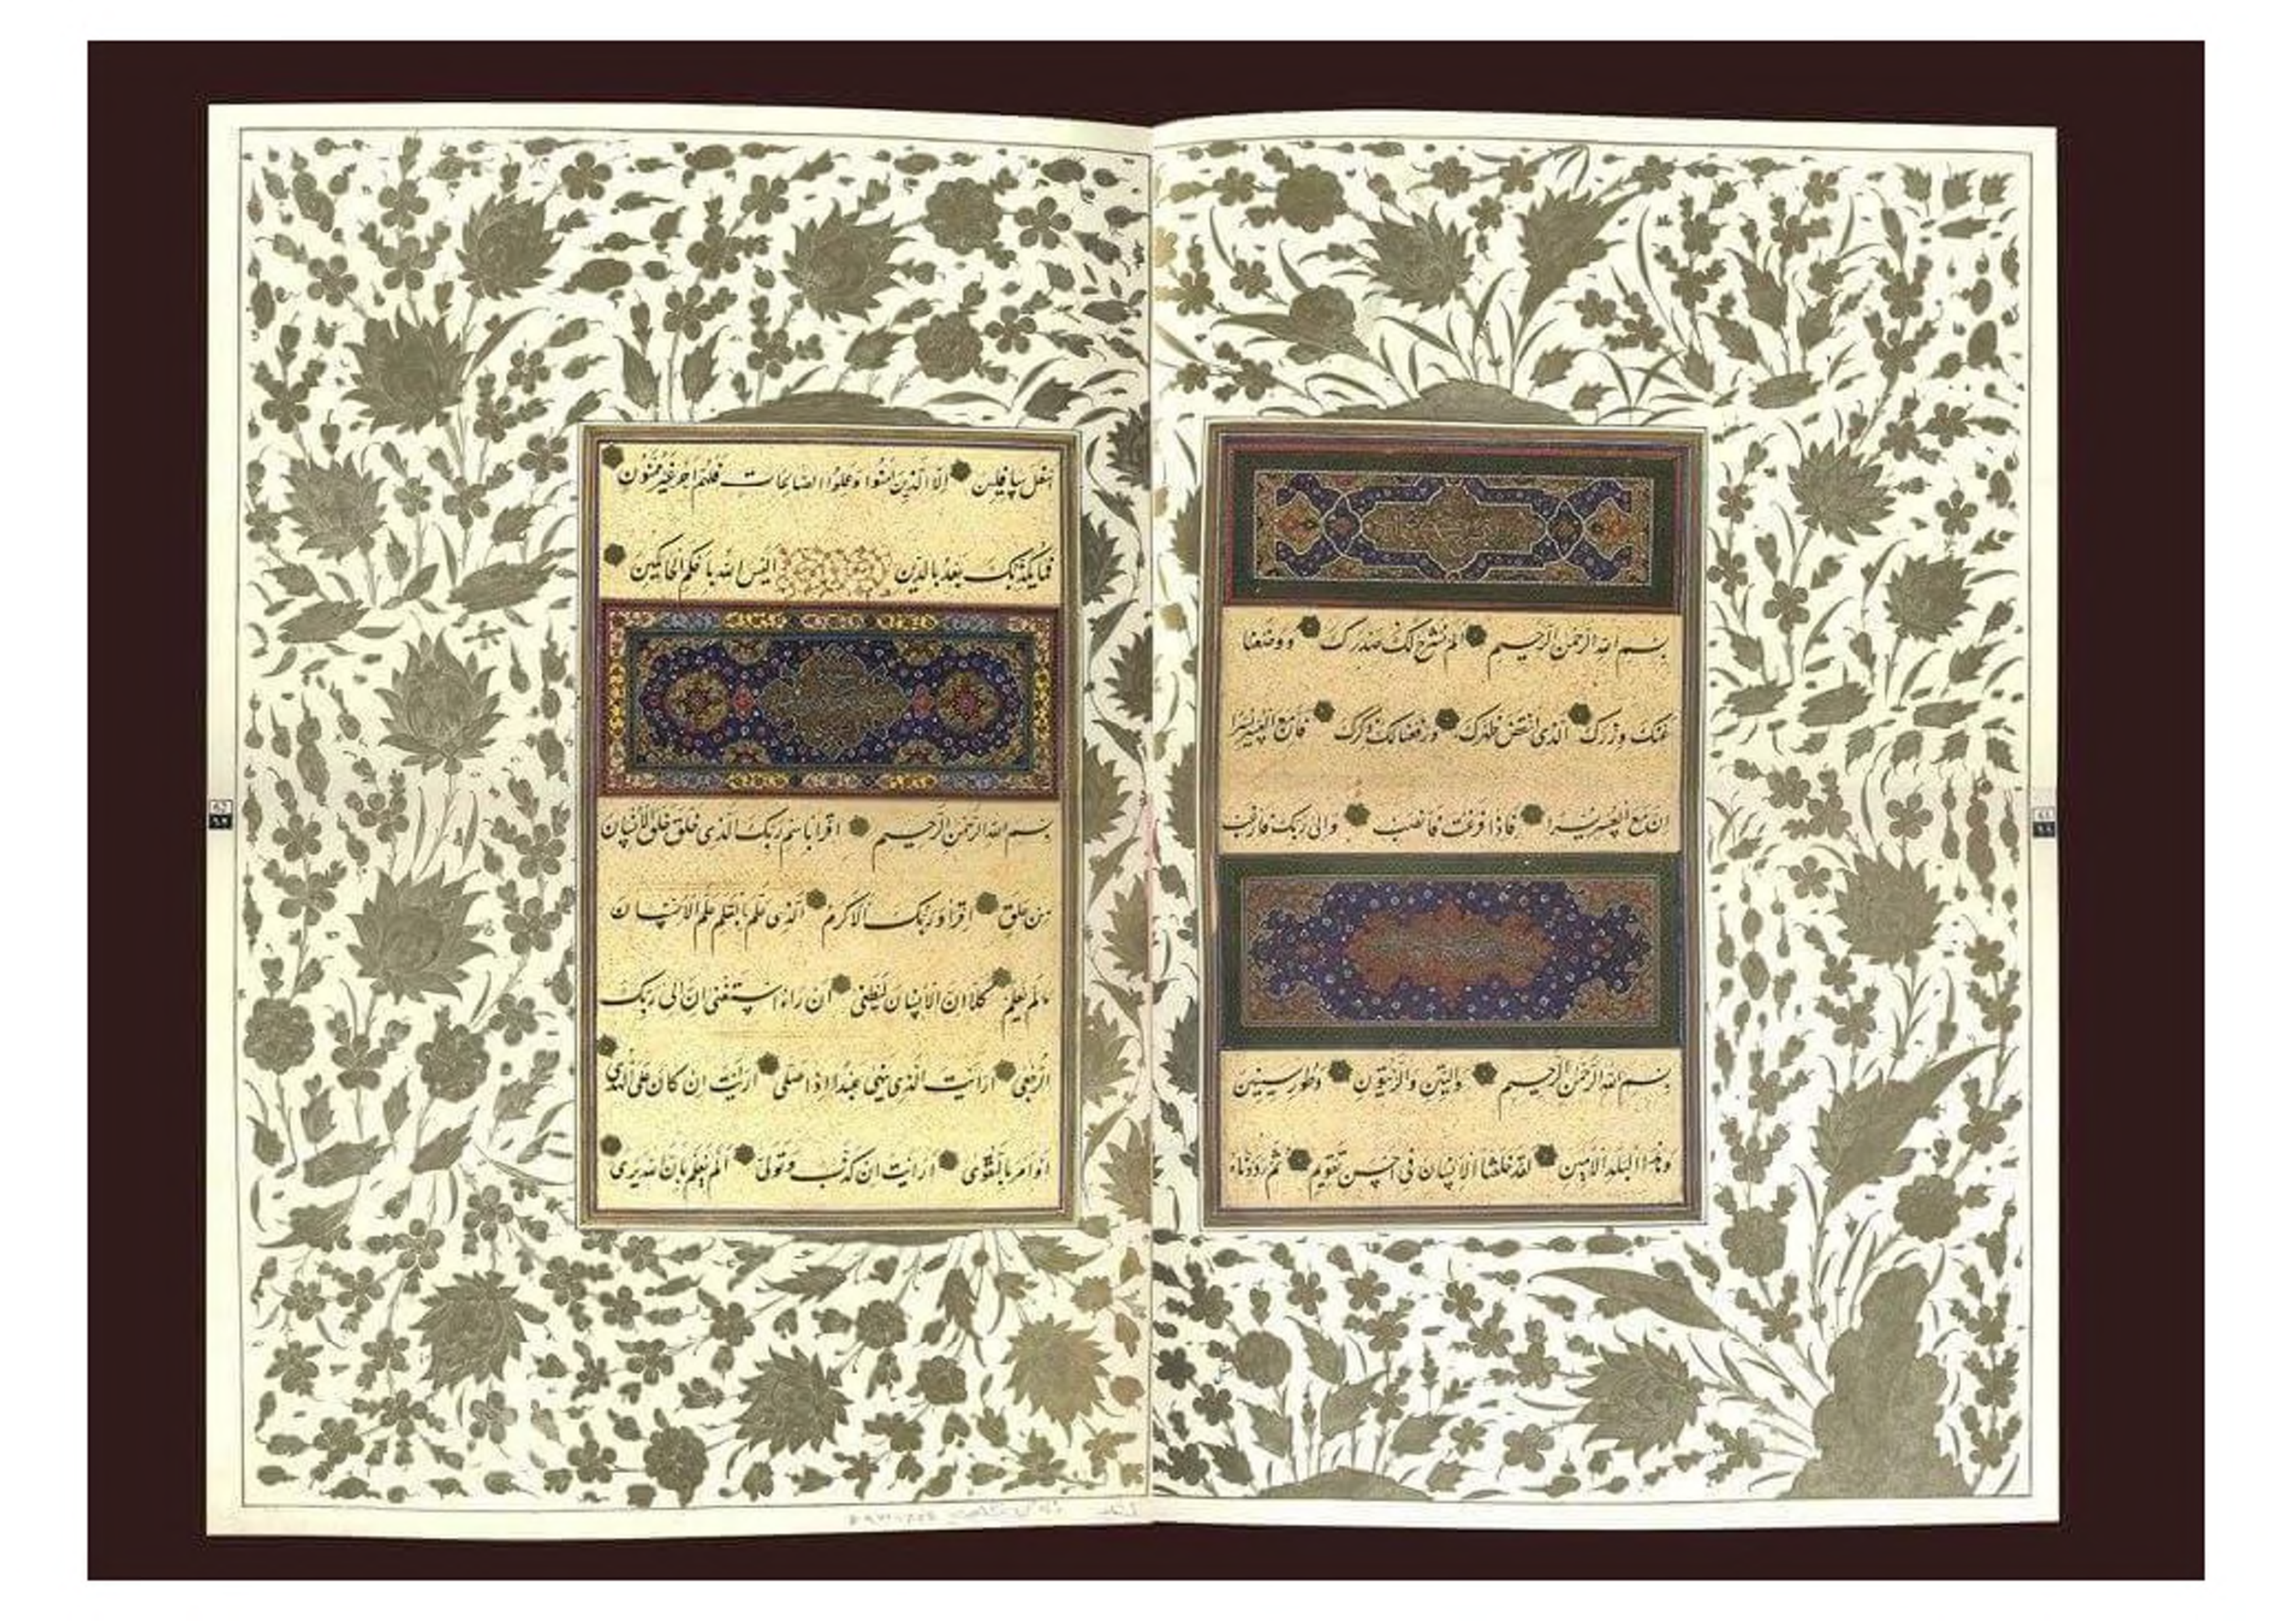 بسم الله الرحمن الرحيم الم نشرح لك صدرك ووضعنا
عنك وزرك الذى انقض ظهرك ورفعنا لك ذكرك فان مع العسر يسرا
ان مع العسر يسرا فاذا فرغت فانصب والى ربك فارغب
بسم الله الرحمن الرحيم والتين والزيتون وطور سينين
وهذا البلد الامين لقد خلقنا الانسان فى احسن تقويم ثم رددناه
اسفل سافلين الا الذين امنوا وعملوا الصالحات فلهم اجر غير ممنون
فما يكذبك بعد بالدين اليس الله باحكم الحاكمين
بسم الله الرحمن الرحيم اقرا باسم ربك الذى خلق خلق الانسان
من علق اقرا وربك الاكرم الذى علم بالقلم علم الانسان
مالم يعلم كلا ان الانسان ليطغى ان راه استغنى ان الى ربك
الرجعى ارايت الذى ينهى عبدا اذا صلى ارايت ان كان على الهدى
او امر بالتقوى ارايت ان كذب وتولى الم يعلم بان الله يرى